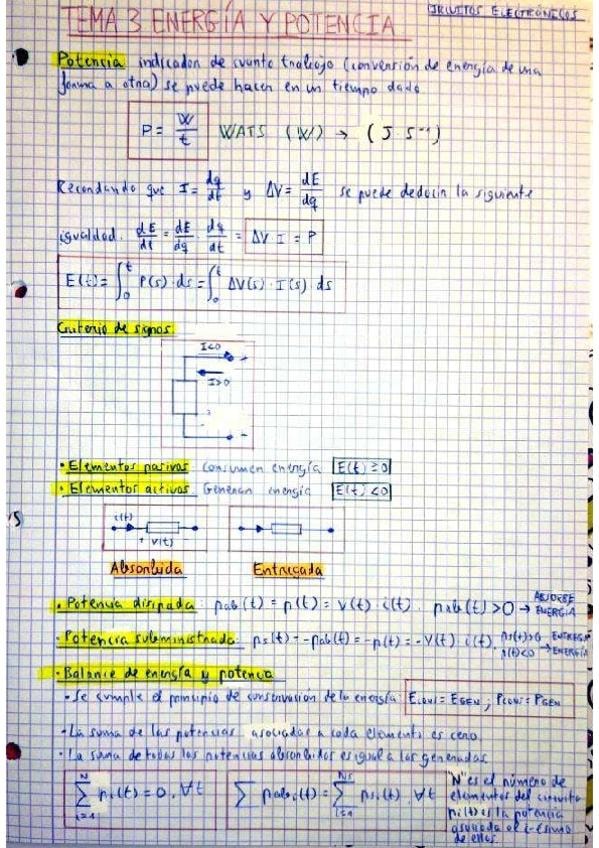 CIRCUITOS ELECTRÓNICOS
TEMA 3 ENERGÍA Y POTENCIA
Potencia indicador de cuanto trabajo (conversión de energía de una
forma a otra) se puede hacer en un tiempo dado
P = W/t WATS (W) → (J·s⁻¹)
Recordando que I = dq/dt y ΔV = dE/dq se puede deducir la siguiente
igualdad. dE/dt = dE/dq · dq/dt = ΔV·I = P
E(t) = ∫₀ᵗ P(s)·ds = ∫₀ᵗ ΔV(s)·I(s)·ds
Criterio de signos
I<0
I>0
· Elementos pasivos Consumen energía E(t) ≥ 0
· Elementos activos Generan energía E(t) < 0
i(t)
+ v(t)
Absorbida Entregada
· Potencia disipada: pab(t) = p(t) = v(t)·i(t). pab(t) > 0 → ABSORBE ENERGÍA
· Potencia subministrada: ps(t) = -pab(t) = -p(t) = -v(t)·i(t) ps(t)>0 ENTREGA
p(t)<0 → ENERGÍA
· Balance de energía y potencia
- Se cumple el principio de conservación de la energía: Econs = EGEN ; Pcons = PGEN
- La suma de las potencias asociadas a cada elemento es cero
- La suma de todas las potencias absorbidas es igual a las generadas
∑ᴺᵢ₌₁ pi(t) = 0, ∀t ∑ pabi(t) = ∑ᴺˢᵢ₌₁ psi(t), ∀t
"N" es el número de
elementos del circuito
pi(t) es la potencia
asociada al i-ésimo
de ellos.